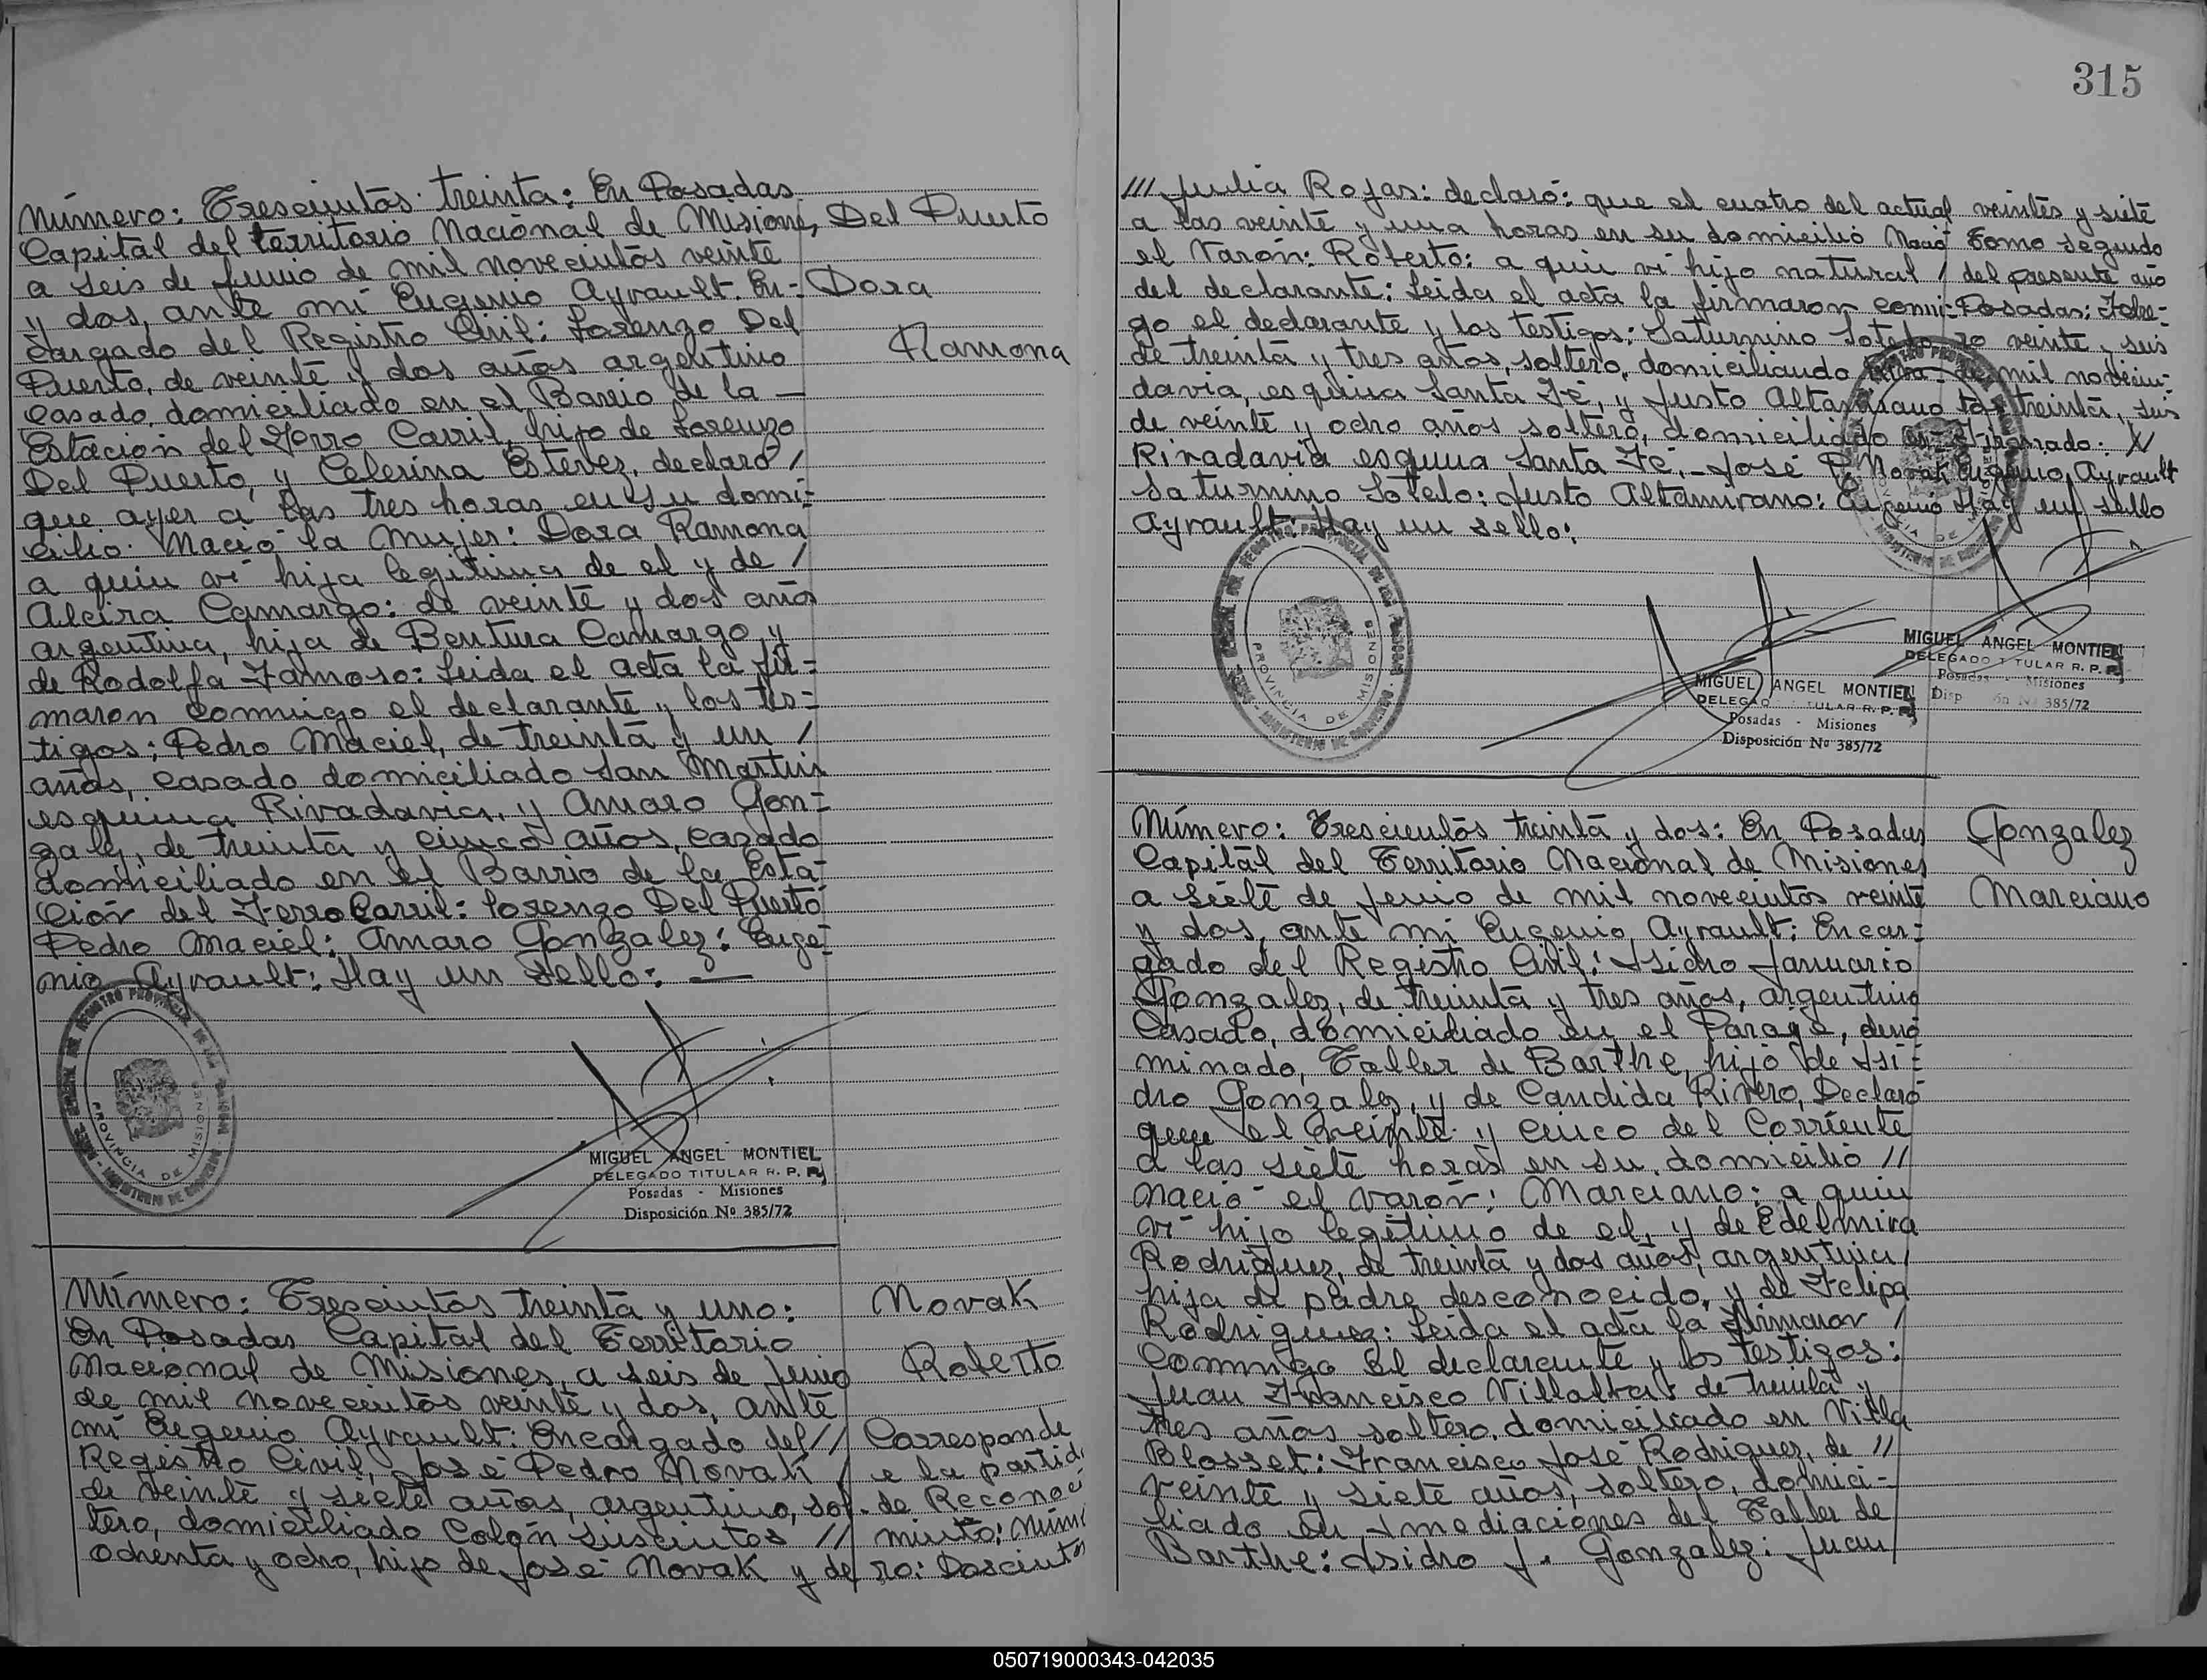 Número: Trescientos treinta: En Posadas
Capital del territorio Nacional de Misiones,
a seis de Junio de mil novecientos veinte
y dos, ante mi Eugenio Ayrault. En-
cargado del Registro Civil: Lorenzo Del
Puerto, de veinte y dos años argentino
casado, domiciliado en el Barrio de la —
Estación del Ferro Carril, hijo de Lorenzo
Del Puerto, y Celerina Estevez, declaró /
que ayer a las tres horas en su domi-
cilio. Nació la Mujer: Dora Ramona
a quien ví hija legitima de el y de /
Alcira Camargo: de veinte y dos años
argentina, hija de Bentura Camargo, y
de Rodolfa Famoso: Leida el acta la fir-
maron conmigo el declarante y los tes-
tigos: Pedro Maciel, de treinta y un /
años, casado domiciliado San Martin
esquina Rivadavia, y Amaro Gon-
zalez, de treinta y cinco años, casado
domiciliado en el Barrio de la Esta-
ción del Ferro Carril: Lorenzo Del Puerto
Pedro Maciel: Amaro Gonzalez: Euge-
nio Ayrault: Hay un sello: —
Del Puerto
Dora
Ramona
PROVINCIA DE MISIONES
MIGUEL ANGEL MONTIEL
DELEGADO TITULAR R. P. P.
Posadas - Misiones
Disposición Nº 385/72
Número: Trescientos treinta y uno:
En Posadas Capital del Territorio
Nacional de Misiones, a seis de Junio
de mil novecientos veinte y dos, ante
mi Eugenio Ayrault: Encargado del //
Registro Civil, José Pedro Novak /
de veinte y siete años, argentino, sol-
tero, domiciliado Colón suscientos //
ochenta y ocho, hijo de José Novak y de
Novak
Roberto
Corresponde
e la partid
de Reconoci
miento: Núme
ro: Doscientos
315
/// Julia Rojas: declaró: que el cuatro del actual
a las veinte y una horas en su domicilio Nació
el Varón: Roberto: a quien ví hijo natural /
del declarante: Leida el acta la firmaron conmi-
go el declarante y los testigos: Saturnino Sotelo
de treinta y tres años, soltero, domiciliado Riva-
davia, esquina Santa Fé, y Justo Altamirano
de veinte y ocho años soltero, domiciliado en
Rivadavia esquina Santa Fé. José P. Novak
Saturnino Sotelo: Justo Altamirano: Eugenio
Ayrault: Hay un sello:
veintes y siete
Tomo segundo
del presente año
Posadas: Febre-
ro veinte y seis
de mil novecien-
tos treinta, seis
Firmado:
Eugenio Ayrault
Hay un sello
PROVINCIA DE MISIONES
MIGUEL ANGEL MONTIEL
DELEGADO TITULAR R. P. P.
Posadas - Misiones
Disposición Nº 385/72
MIGUEL ANGEL MONTIEL
DELEGADO TITULAR R. P. P.
Posadas - Misiones
Disp ón Nº 385/72
Número: Trescientos treinta y dos: En Posadas
Capital del Territorio Nacional de Misiones
a siete de Junio de mil novecientos veinte
y dos, ante mi Eugenio Ayrault: Encar-
gado del Registro Civil: Isidro Januario
Gonzalez, de treinta y tres años, argentino
Casado, domiciliado en el Paraje, deno
minado, Taller de Barthe, hijo de Isi-
dro Gonzalez, y de Candida Rivero, Declaró
que el veinte y cinco del Corriente
a las siete horas en su domicilio //
nació el varón: Marciano: a quien
ví hijo legitimo de el, y de Edelmira
Rodriguez, de treinta y dos años, argentina,
hija de padre desconocido, y de Felipa
Rodriguez: Leida el acta la firmaron /
Conmigo el declarante y los testigos:
Juan Francisco Villalba: de treinta y
tres años soltero, domiciliado en Villa
Blosset: Francisco José Rodriguez, de //
veinte y siete años, soltero, domici-
liado en Inmediaciones del Taller de
Barthe: Isidro J. Gonzalez: Juan
Gonzalez
Marciano
050719000343-042035